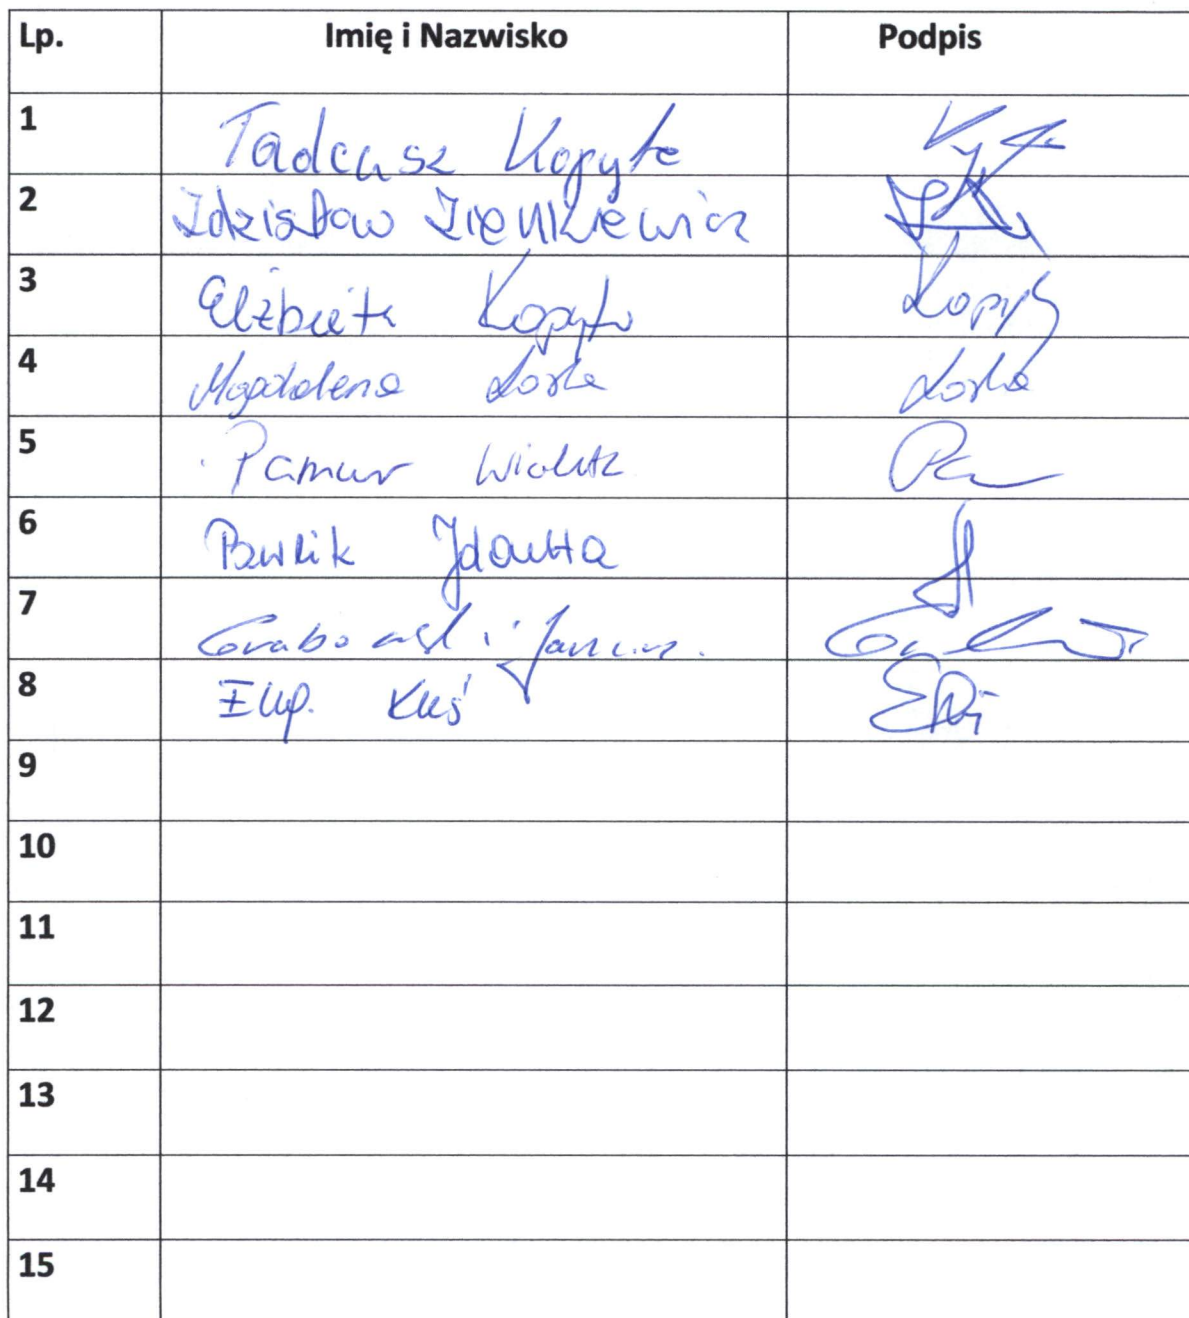 Lp. Imię i Nazwisko Podpis
1 Tadeusz Kopyte
2 Zdzisław Zienkiewicz
3 Elżbieta Kopyto Kopyto
4 Magdalena Łoska Łoska
5 Pamur Wioletta
6 Jolanta
7 Grabowski Janusz.
8 Kuś
9
10
11
12
13
14
15